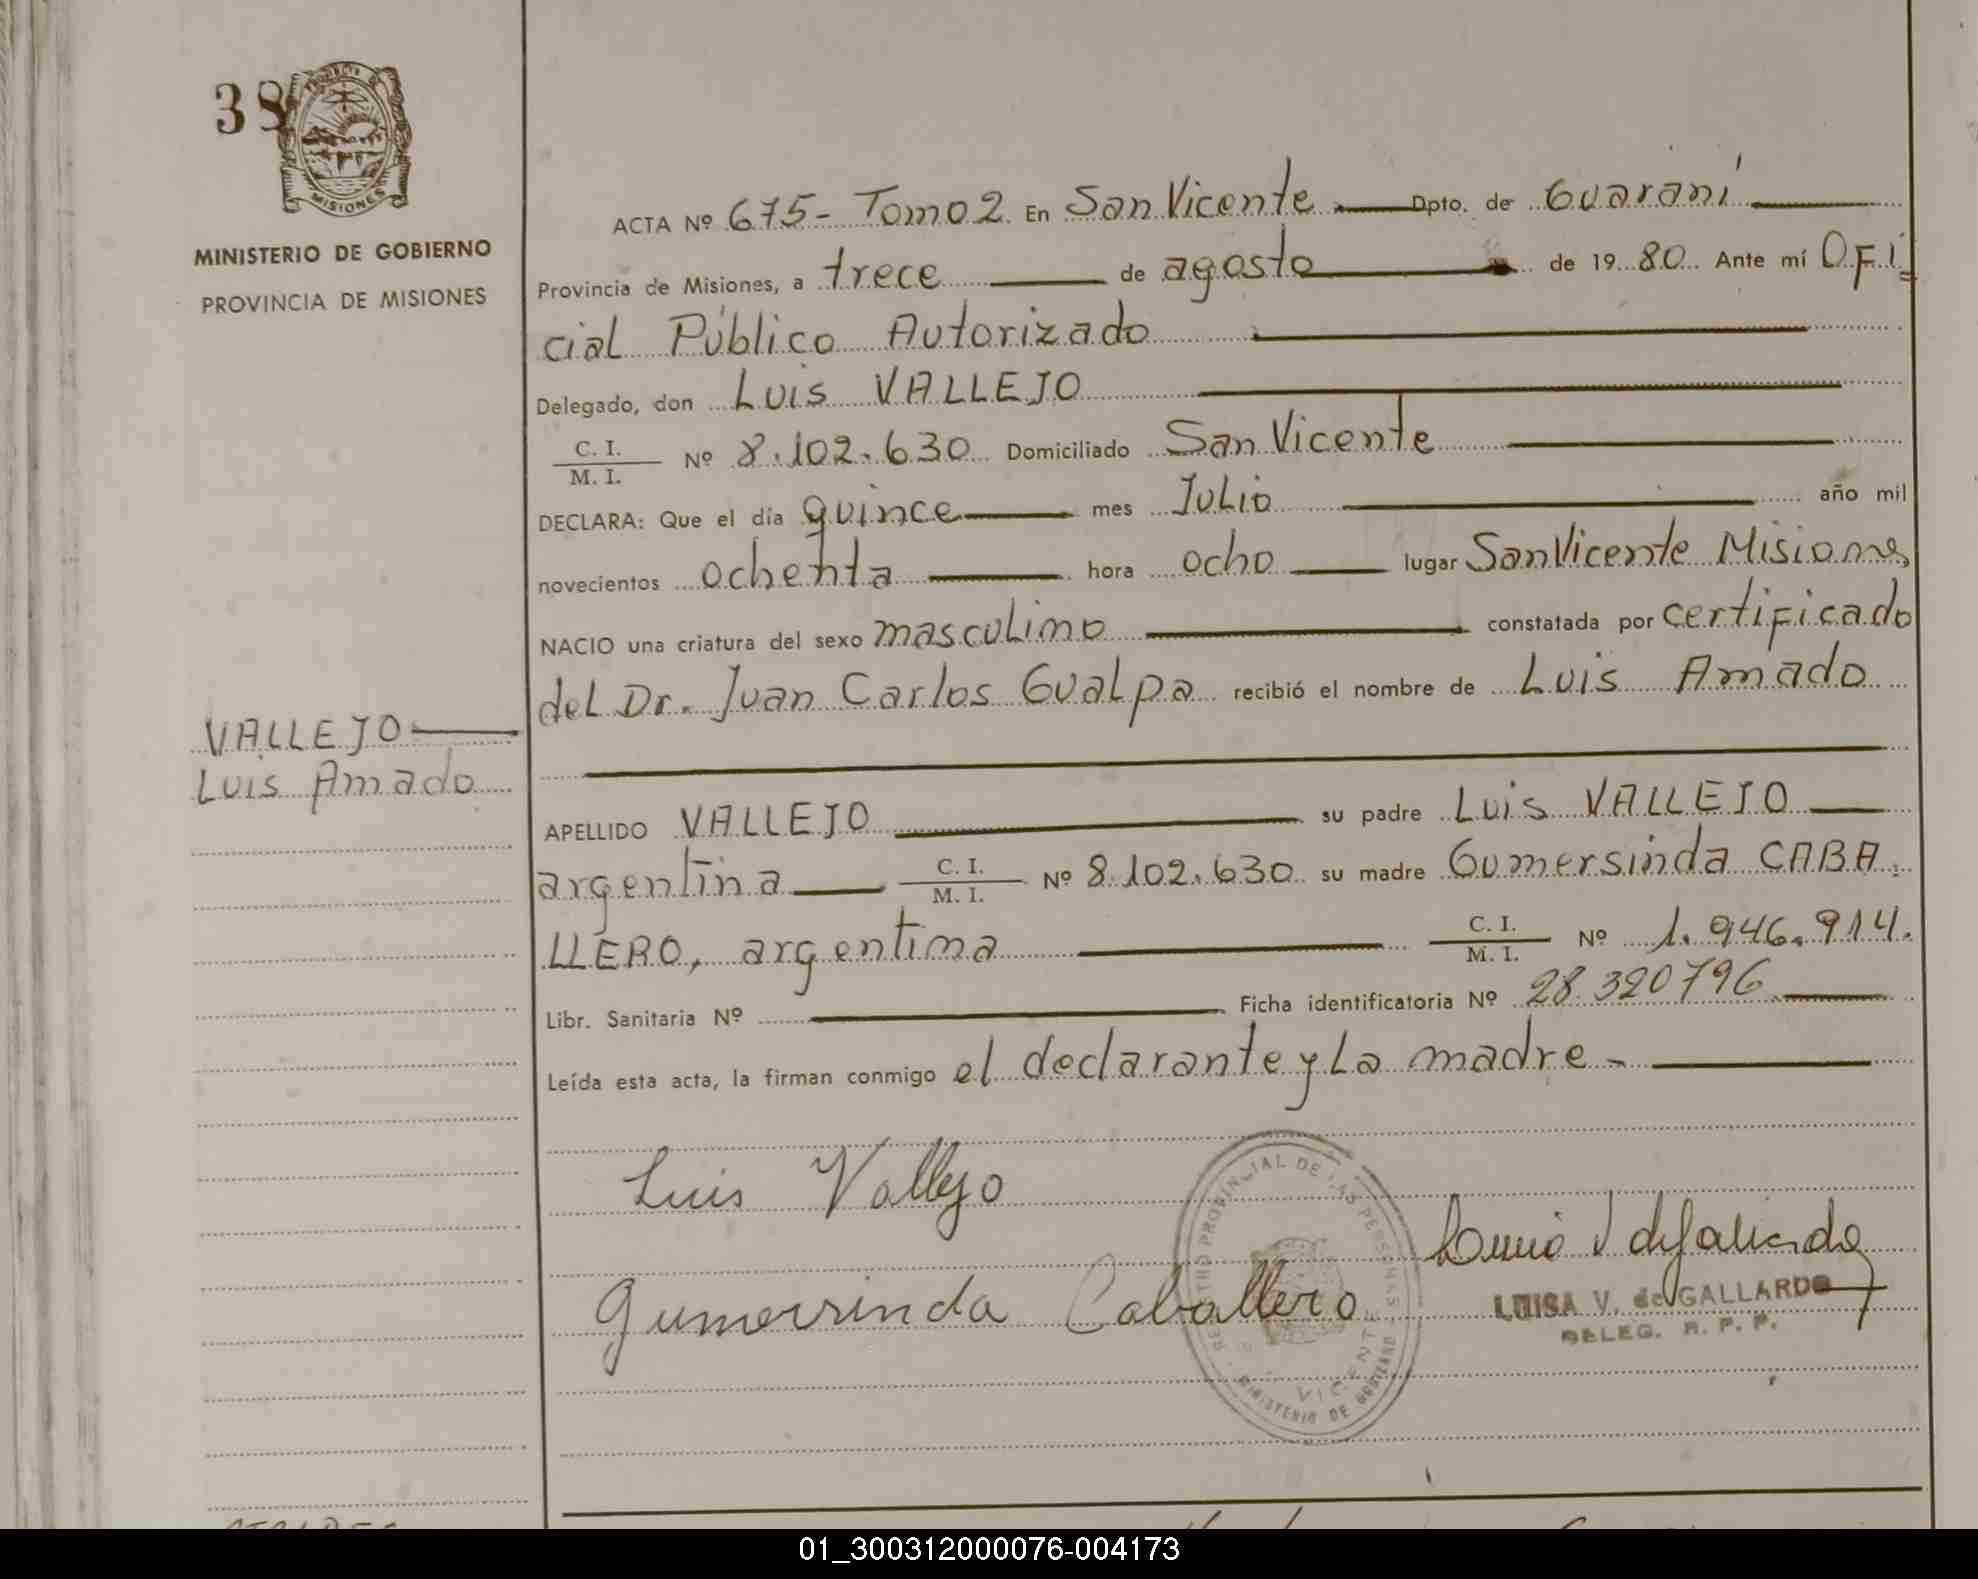 38
MISIONES
MINISTERIO DE GOBIERNO
PROVINCIA DE MISIONES
ACTA Nº 675- Tomo 2 En San Vicente Dpto. de Guaraní
Provincia de Misiones, a trece de agosto de 1980 Ante mí OFi=
cial Público Autorizado
Delegado, don Luis VALLEJO
C. I.
M. I. Nº 8.102.630 Domiciliado San Vicente
DECLARA: Que el día quince mes Julio año mil
novecientos ochenta hora ocho lugar San Vicente Misiones
NACIO una criatura del sexo masculino constatada por certificado
del Dr. Juan Carlos Gualpa recibió el nombre de Luis Amado
VALLEJO
Luis Amado
APELLIDO VALLEJO su padre Luis VALLEJO
argentina C. I. M. I. Nº 8.102.630 su madre Gumersinda CABA-
LLERO, argentina C. I. M. I. Nº 1.946.914.
Libr. Sanitaria Nº Ficha identificatoria Nº 28.320796
Leída esta acta, la firman conmigo el declarante y La madre-
Luis Vallejo
Gumersinda Caballero
REGISTRO PROVINCIAL DE LAS PERSONAS
VICENTE
MINISTERIO DE GOBIERNO
LUISA V. de GALLARDO
DELEG. R. P. P.
01_300312000076-004173